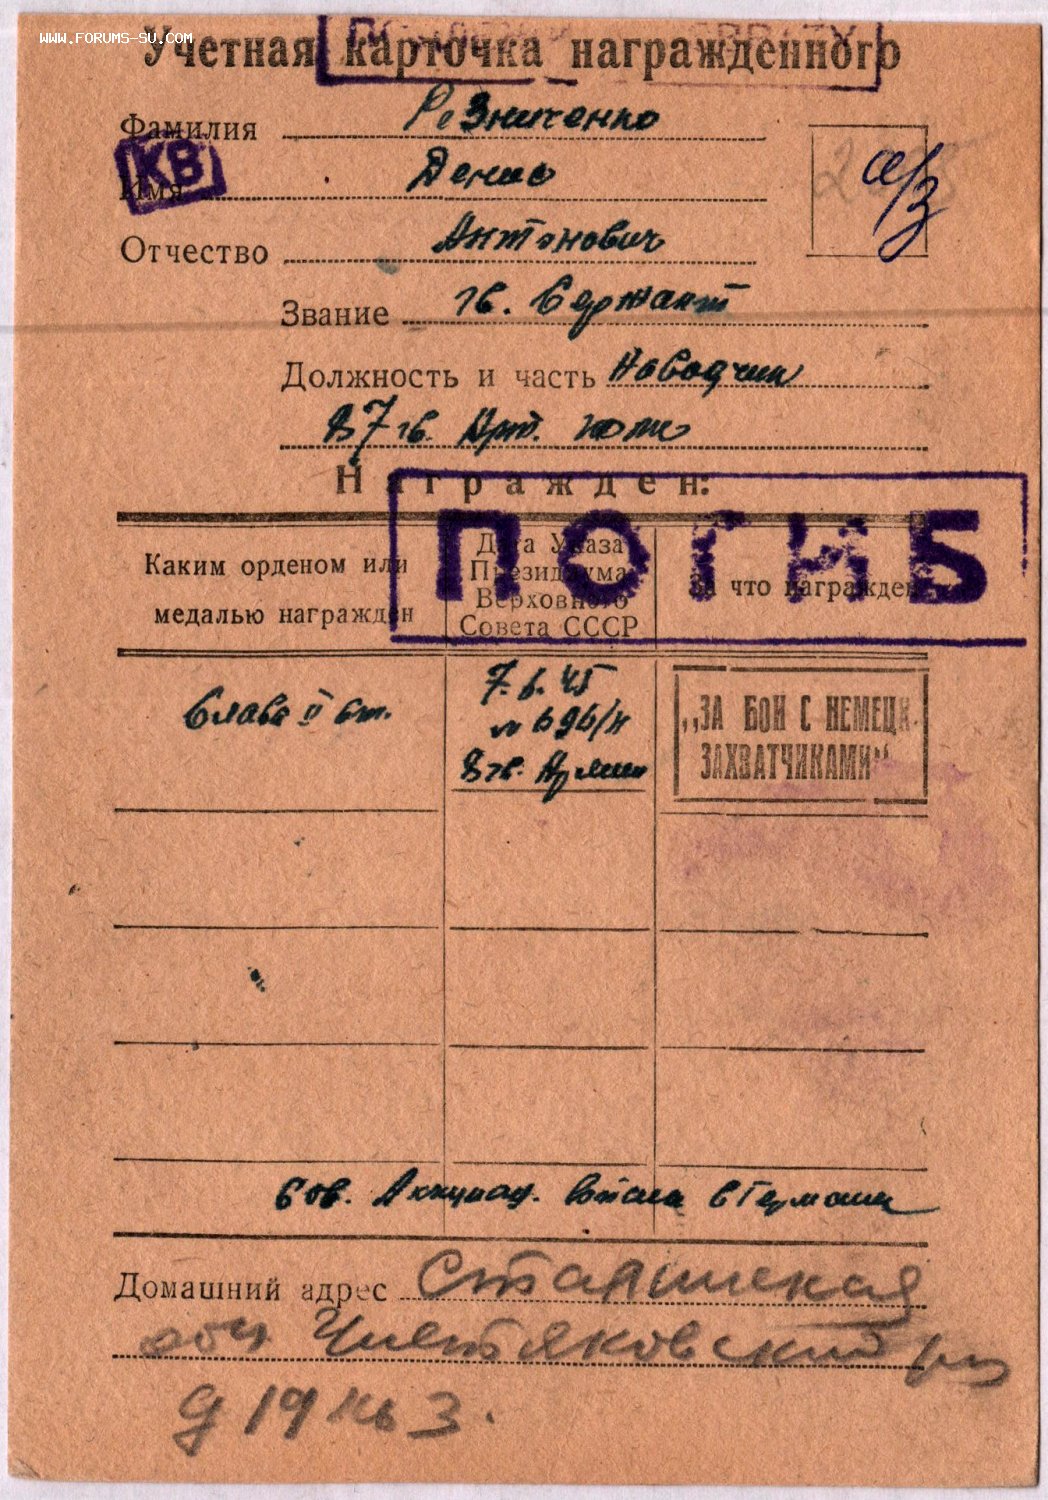 WWW.FORUMS-SU.COM
Учетная карточка награжденного
Фамилия Резниченко
КВ
Имя Денис
а/з
Отчество Антонович
Звание гв. Сержант
Должность и часть Наводчик
87 гв. Арт. полк
Награжден:
ПОГИБ
Каким орденом или медалью награжден
Дата Указа Президиума Верховного Совета СССР
За что награжден
Слава II ст.
7.6.45
№ 696/н
8 гв. Армии
„ЗА БОИ С НЕМЕЦК. ЗАХВАТЧИКАМИ“
Сов. Оккупац. войска в Германии
Домашний адрес Сталинская
обл Чистяковский р-н
д 19 кв 3.